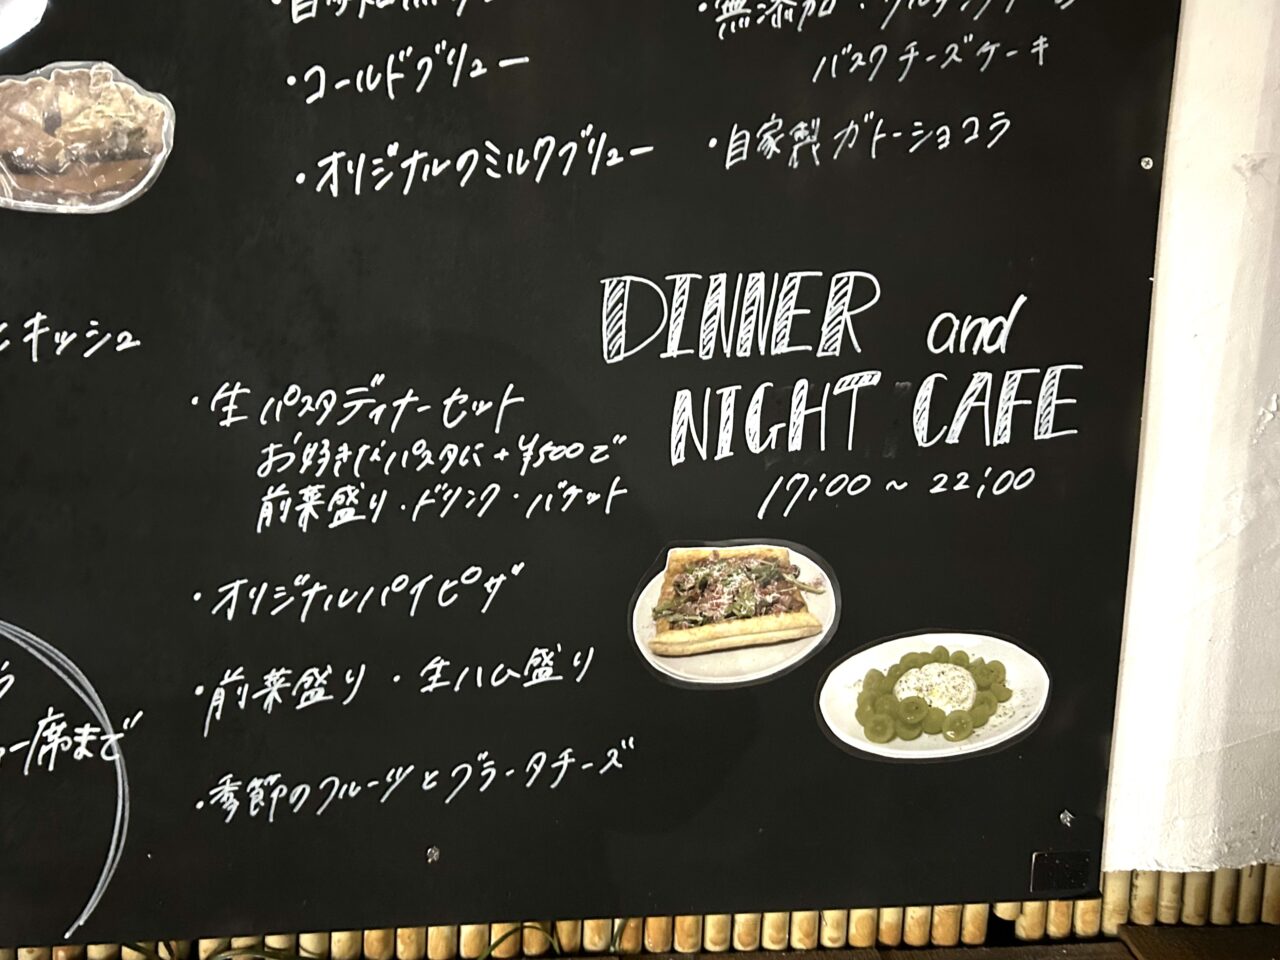 ・コールドブリュー
・オリジナルのミルクブリュー
バスクチーズケーキ
・自家製ガトーショコラ
DINNER and
NIGHT CAFE
17:00～22:00
キッシュ
・生パスタディナーセット
お好きなパスタに+¥500で
前菜盛り・ドリンク・バケット
・オリジナルパイピザ
・前菜盛り・生ハム盛り
・季節のフルーツとブラータチーズ
席まで